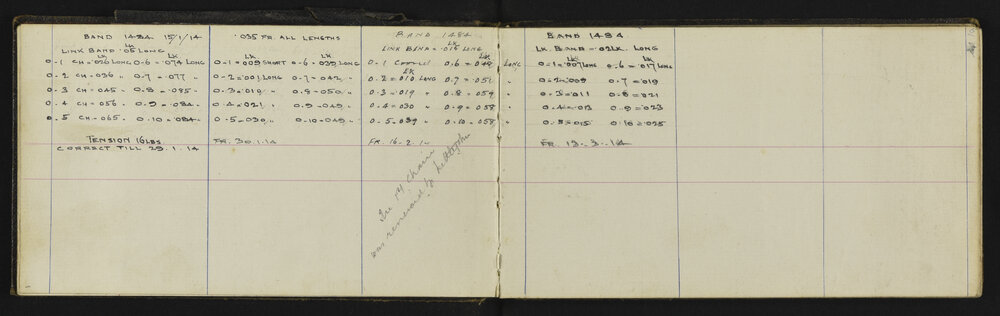 BAND 1484 15/1/14
LINK BAND .05 LONG
LK LK
0-1 CH = .020 LONG 0-6 = .074 LONG
0-2 CH = 036 " 0-7 = .077 "
0-3 CH = 045 " 0-8 = .085 "
0-4 CH = .056 " 0-9 = .084 "
0-5 CH = .065 " 0-10 = .084 "
TENSION 16 LBS
CORRECT TILL 29.1.14
.035 FR. ALL LENGTHS
LK LK
0-1 = 009 SHORT 0-6 = 039 LONG
0-2 = .001 LONG 0-7 = .042 "
0-3 = .019 " 0-8 = 050 "
0-4 = .021 " 0-9 = .049 "
0-5 = .030 " 0-10 = .049 "
FR. 30.1.14
BAND 1484
LK
LINK BAND = LONG
LK
0-1 0.6 = LONG
LK
0-2 = .010 LONG 0.7 = .051 "
0-3 = .019 " 0.8 = .059 "
0-4 = .030 " 0.9 = .058 "
0-5 = .039 " 0.10 = .058 "
FR. 16.2.14
In 1914 chain
was renewed by
BAND 1484
LK. BAND = .02 LK. LONG
LK LK
0-1 = .007 LONG 0-6 = .017 LONG
0-2 = .009 0-7 = .019
0-3 = .011 0-8 = .021
0-4 = .013 0-9 = .023
0-5 = .015 0-10 = .025
FR. 13.3.14